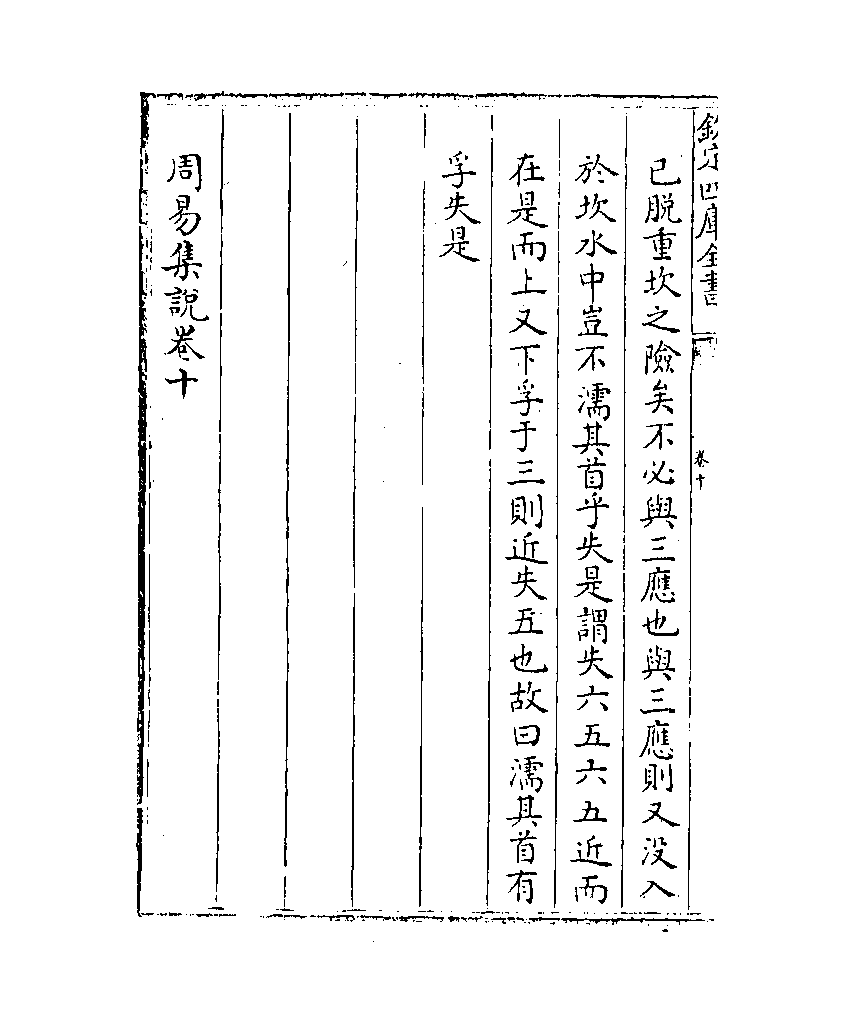 欽定四庫全書
卷十
已脱重坎之險矣不必與三應也與三應則又没入
於坎水中豈不濡其首乎失是謂失六五六五近而
在是而上又下孚于三則近失五也故曰濡其首有
孚失是
周易集說卷十